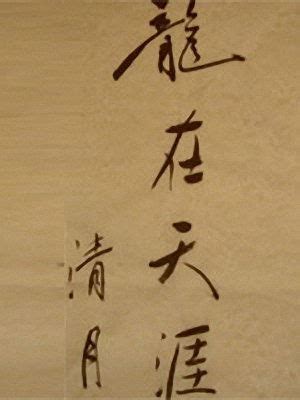 龍在天涯
清月